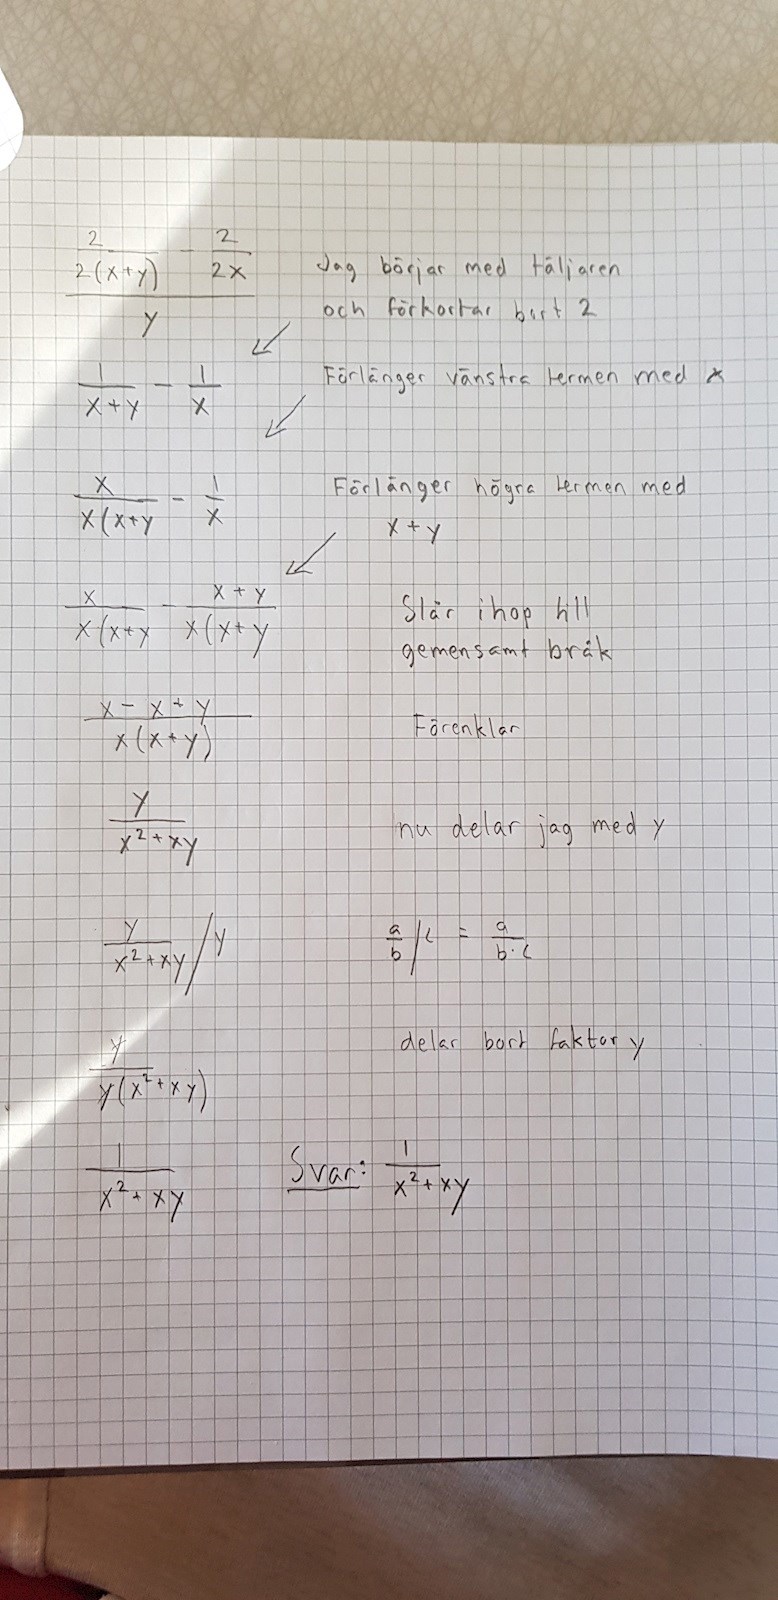 2/(2(x+y)) - 2/(2x) Jag börjar med täljaren
y och förkortar bort 2
1/(x+y) - 1/x Förlänger vänstra termen med x
x/(x(x+y) - 1/x Förlänger högra termen med
x+y
x/(x(x+y) - (x+y)/(x(x+y) Slår ihop till
gemensamt bråk
(x - x + y)/(x(x+y)) Förenklar
y/(x²+xy) nu delar jag med y
y/(x²+xy) / y a/b /c = a/(b·c)
y/(y(x²+xy)) delar bort faktor y
1/(x²+xy) Svar: 1/(x²+xy)